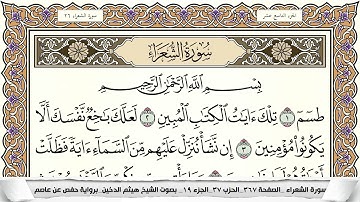 الجزء التاسع عشر
سورة الشعراء ٢٦
سُورَةُ الشُّعَرَاءِ
بِسْمِ اللَّهِ الرَّحْمَٰنِ الرَّحِيمِ
طسٓمٓ ١ تِلْكَ ءَايَٰتُ الْكِتَٰبِ الْمُبِينِ ٢ لَعَلَّكَ بَٰخِعٌ نَّفْسَكَ أَلَّا
يَكُونُوا۟ مُؤْمِنِينَ ٣ إِن نَّشَأْ نُنَزِّلْ عَلَيْهِم مِّنَ السَّمَآءِ ءَايَةً فَظَلَّتْ
سورة الشعراء _الصفحة ٣٦٧_الحزب ٣٧_الجزء ١٩ _ بصوت الشيخ هيثم الدخين _برواية حفص عن عاصم